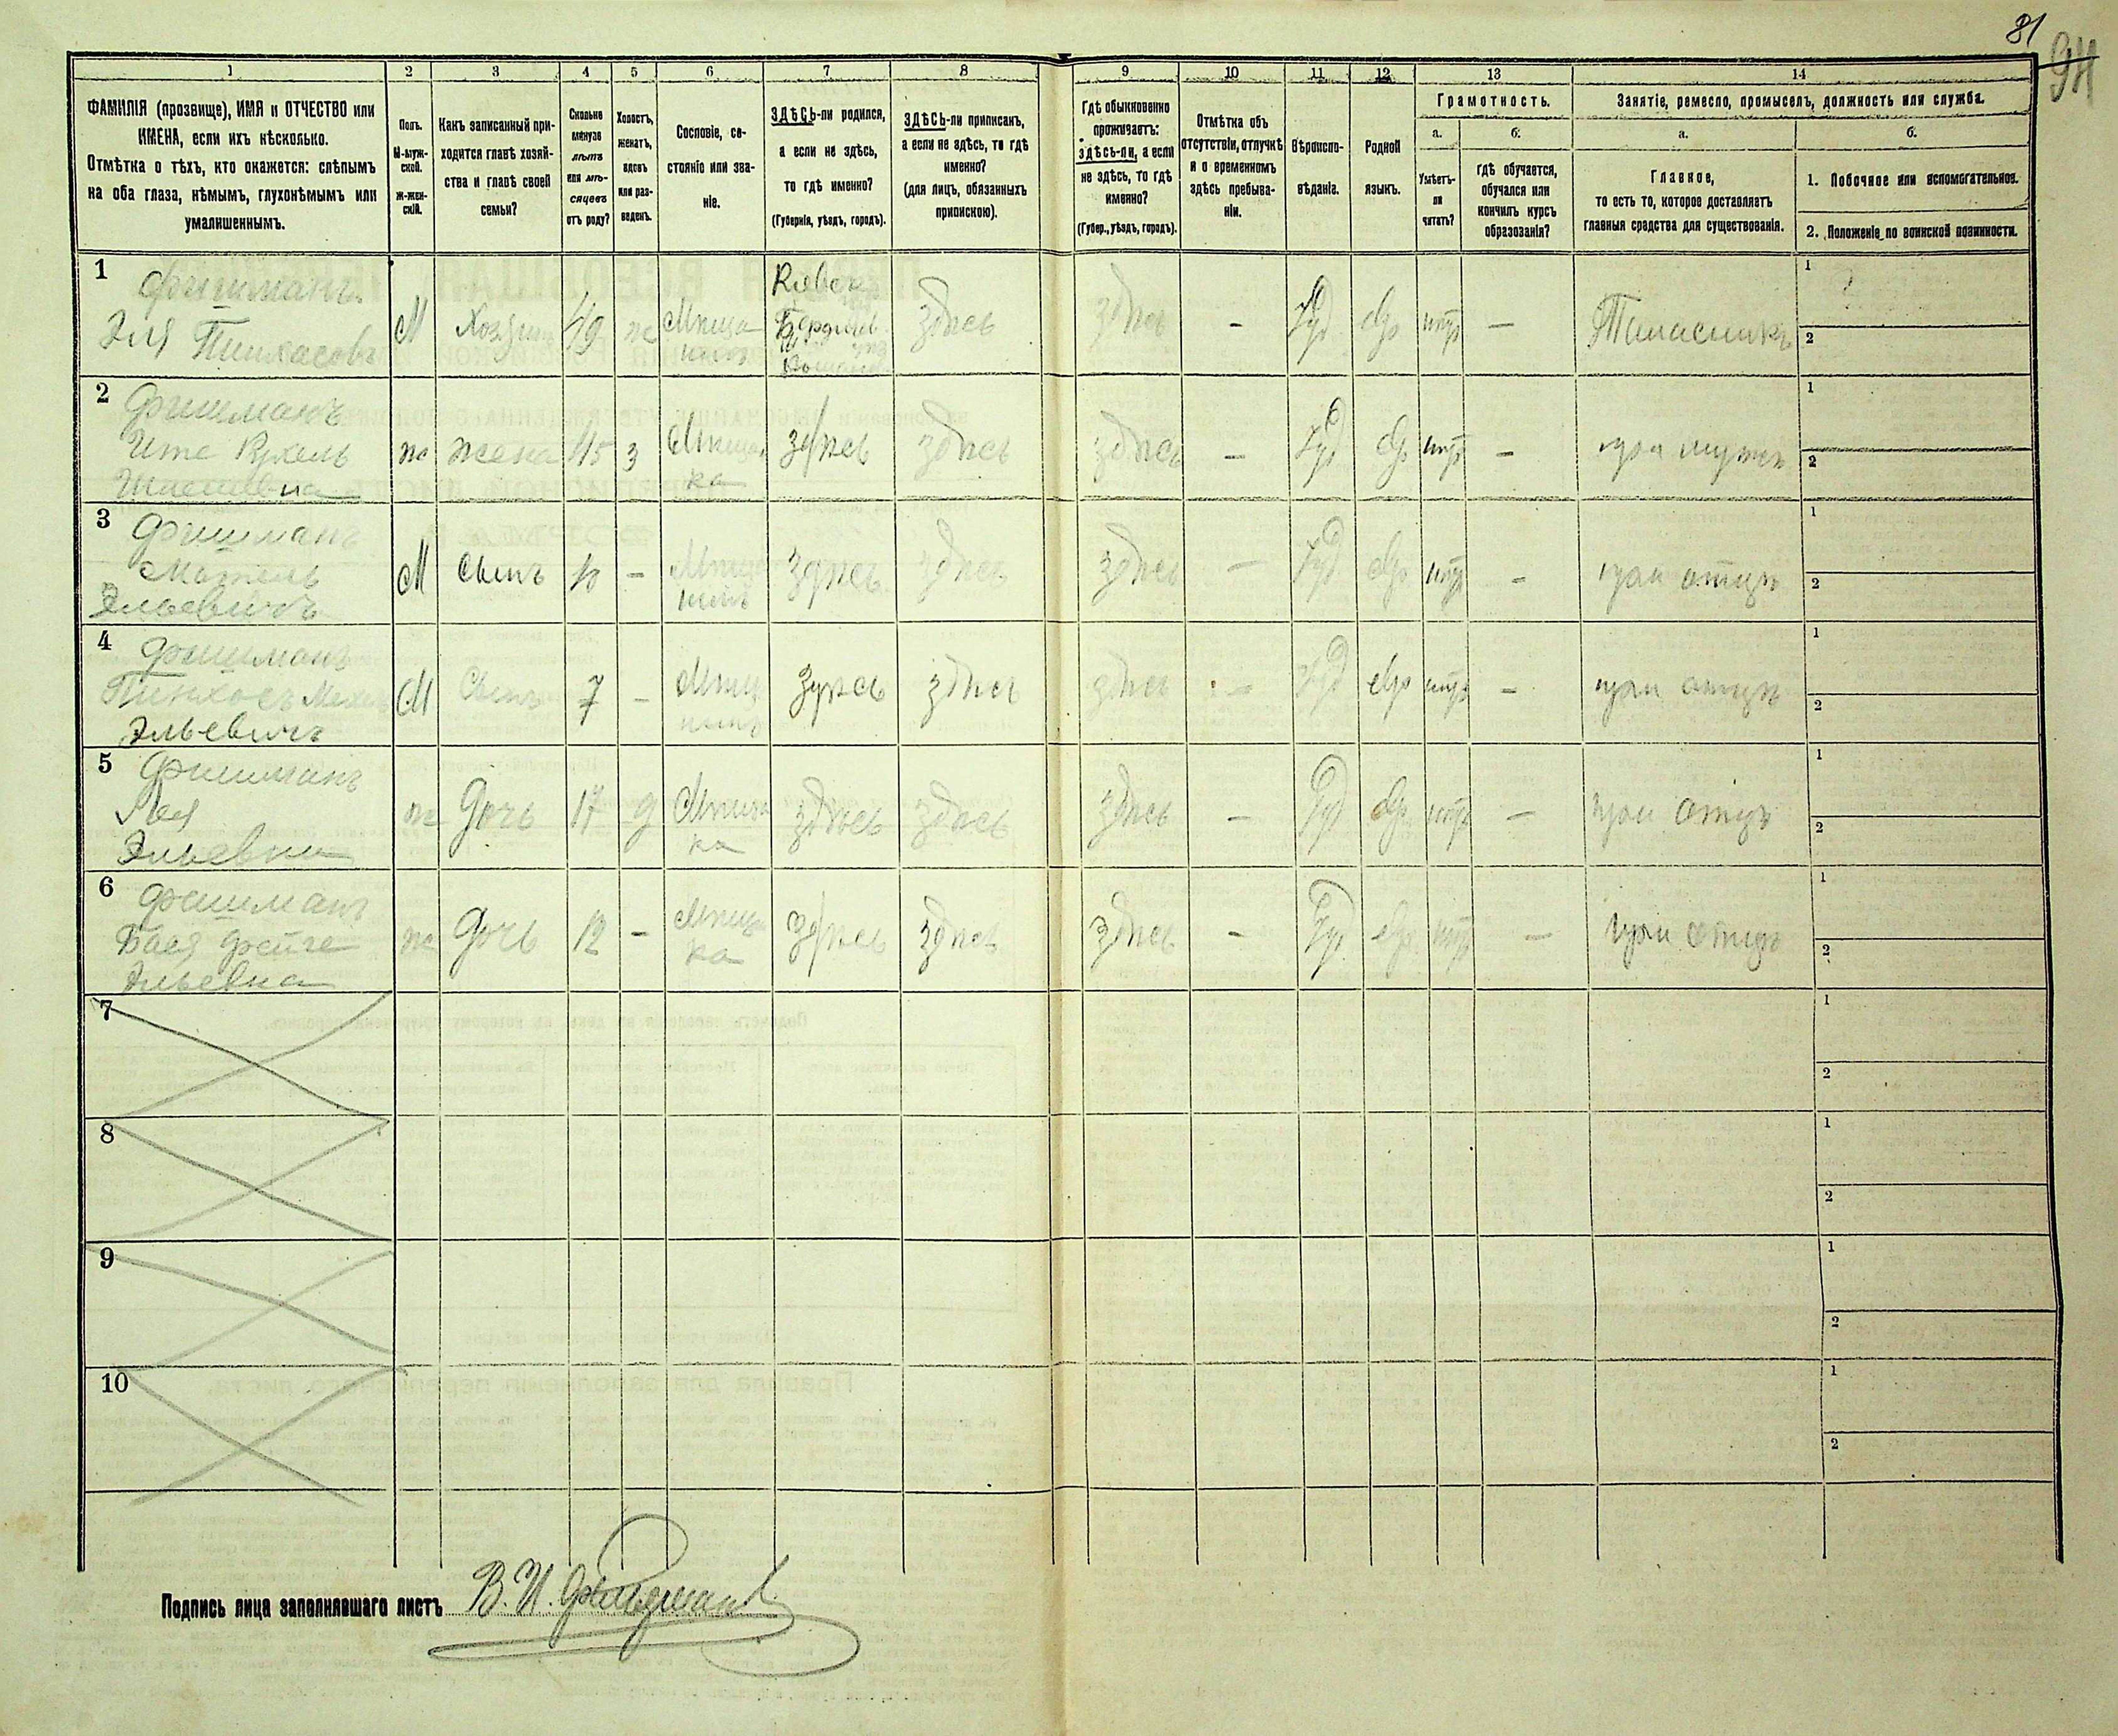 81
94
1 2 3 4 5 6 7 8 9 10 11 12 13 14
ФАМИЛІЯ (прозвище), ИМЯ и ОТЧЕСТВО или
ИМЕНА, если ихъ нѣсколько.
Отмѣтка о тѣхъ, кто окажется: слѣпымъ
на оба глаза, нѣмымъ, глухонѣмымъ или
умалишеннымъ.
Полъ.
М-муж-
ской.
Ж-жен-
скій.
Какъ записанный при-
ходится главѣ хозяй-
ства и главѣ своей
семьи?
Сколько
минуло
лѣтъ
или мѣ-
сяцевъ
отъ роду?
Холостъ,
женатъ,
вдовъ
или раз-
веденъ.
Сословіе, со-
стояніе или зва-
ніе.
ЗДѢСЬ-ли родился,
а если не здѣсь,
то гдѣ именно?
(Губернія, уѣздъ, городъ).
ЗДѢСЬ-ли приписанъ,
а если не здѣсь, то гдѣ
именно?
(для лицъ, обязанныхъ
припискою).
Гдѣ обыкновенно
проживаетъ:
здѣсь-ли, а если
не здѣсь, то гдѣ
именно?
(Губер., уѣздъ, городъ).
Отмѣтка объ
отсутствіи, отлучкѣ
и о временномъ
здѣсь пребыва-
ніи.
Вѣроиспо-
вѣданіе.
Родной
языкъ.
Грамотность.
а.
Умѣетъ-
ли
читать?
б.
гдѣ обучается,
обучался или
кончилъ курсъ
образованія?
Занятіе, ремесло, промыселъ, должность или служба.
а.
Главное,
то есть то, которое доставляетъ
главныя средства для существованія.
б.
1. Побочное или вспомогательное.
2. Положеніе по воинской повинности.
1 Фишманъ
Эля Пинхасовъ
М Хозяинъ 49 ж Мѣща
нинъ
Кіевск.
Бердич.
здѣсь здѣсь - Іуд Евр нѣтъ -
1
2
2 Фишманъ
Ите Рухель
ж жена 45 з Мѣщан
ка
здѣсь здѣсь здѣсь - Іуд Евр нѣтъ - при мужѣ
1
2
3 Фишманъ
Мотель
Эльевичъ
М Сынъ 10 - Мѣща
нинъ
здѣсь здѣсь здѣсь - Іуд Евр нѣтъ - при отцѣ
1
2
4 Фишманъ
Пинхосъ Мехель
Эльевичъ
М Сынъ 7 - Мѣщ
нинъ
здѣсь здѣсь здѣсь - Іуд Евр нѣтъ - при отцѣ
1
2
5 Фишманъ
Лея
Эльевна
ж Дочь 17 д Мѣщан
ка
здѣсь здѣсь здѣсь - Іуд Евр нѣтъ - при отцѣ
1
2
6 Фишманъ
Бася Фейге
Эльевна
ж Дочь 12 - Мѣщан
ка
здѣсь здѣсь здѣсь - Іуд Евр нѣтъ - при отцѣ
1
2
7
1
2
8
1
2
9
1
2
10
1
2
Подпись лица заполнявшаго листъ В. И.